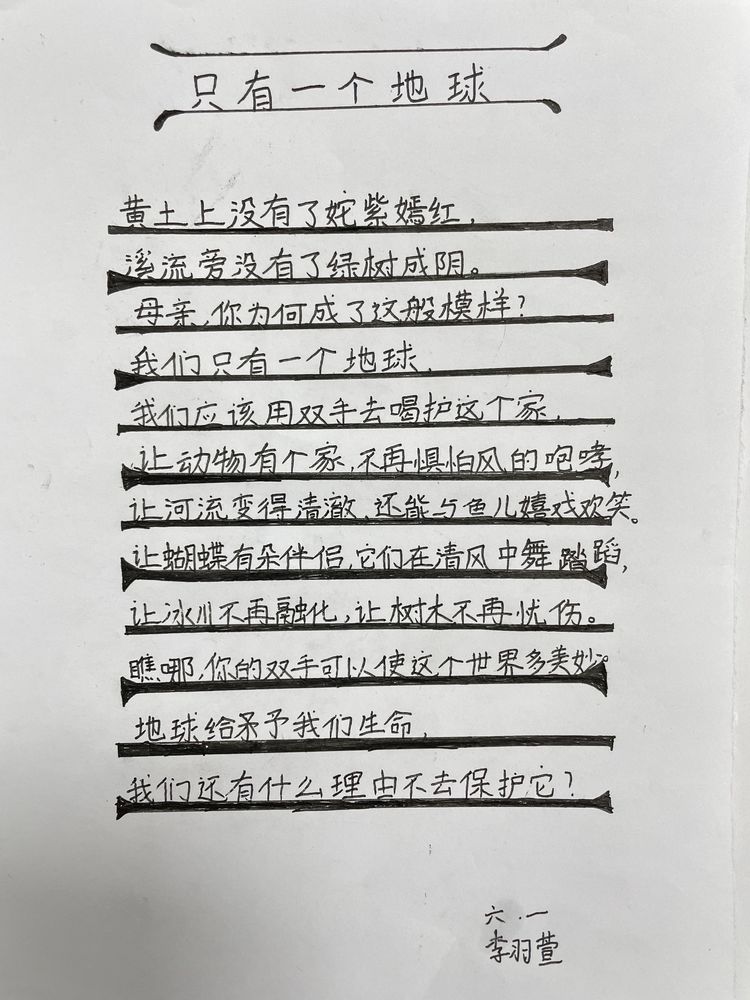 只有一个地球
黄土上没有了姹紫嫣红,
溪流旁没有了绿树成阴。
母亲,你为何成了这般模样?
我们只有一个地球,
我们应该用双手去喝护这个家,
让动物有个家,不再惧怕风的咆哮,
让河流变得清澈,还能与鱼儿嬉戏欢笑。
让蝴蝶有朵伴侣,它们在清风中舞踏蹈,
让冰川不再融化,让树木不再忧伤。
瞧哪,你的双手可以使这个世界多美妙。
地球给矛予我们生命,
我们还有什么理由不去保护它?
六.一
李羽萱